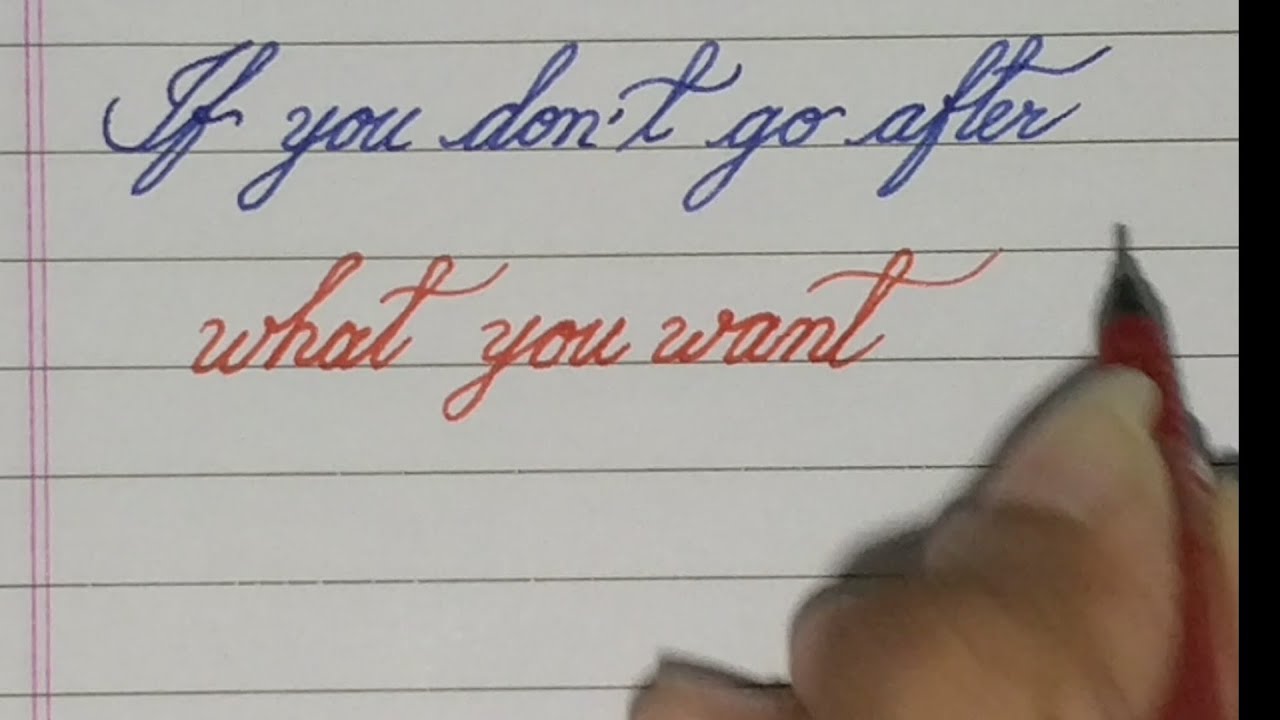 If you don't go after
what you want